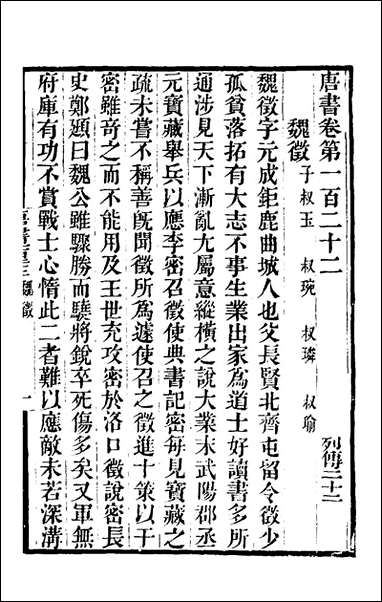 唐書卷第一百二十二
列傳二十二
魏徵 子叔玉 叔琬 叔璘 叔瑜
魏徵字元成鉅鹿曲城人也父長賢北齊屯留令徵少
孤貧落拓有大志不事生業出家爲道士好讀書多所
通涉見天下漸亂尤屬意縱橫之說大業末武陽郡丞
元寶藏舉兵以應李密召徵使典書記密每見寶藏之
疏未嘗不稱善既聞徵所爲遽使召之徵進十策以干
密雖奇之而不能用及王世充攻密於洛口徵說密長
史鄭頲曰魏公雖驟勝而驍將銳卒死傷多矣又軍無
府庫有功不賞戰士心惰此二者難以應敵未若深溝
魏徵
一